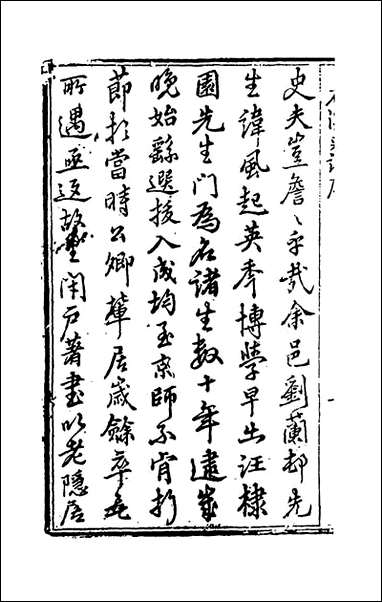 史夫豈詹〻乎哉余邑劉蘭邨先
生諱風起英年博學早出汪棣
園先生門為名諸生數十年逮歲
晚始繇選拔入成均至京師不肯折
節於當時公卿輦居歲餘卒無
所遇亟返故里閉户著書以老隱居